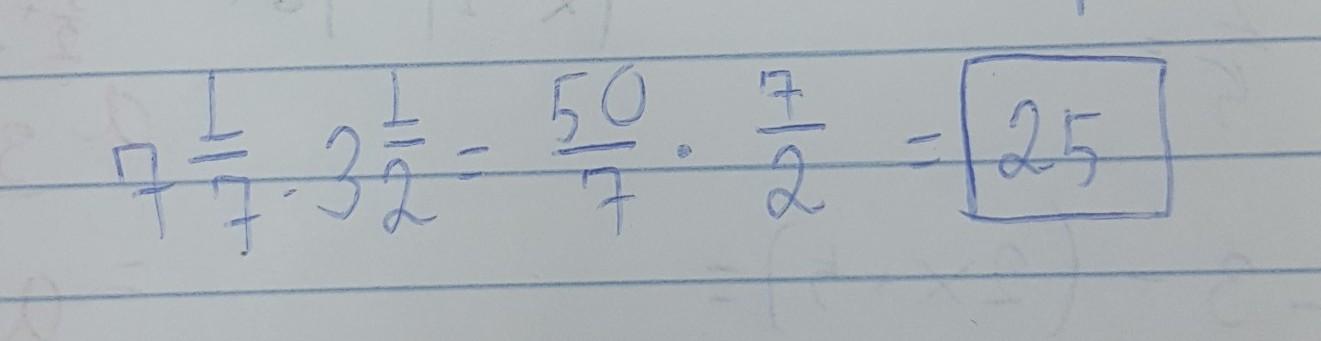 7 1/7 · 3 1/2 = 50/7 · 7/2 = 25